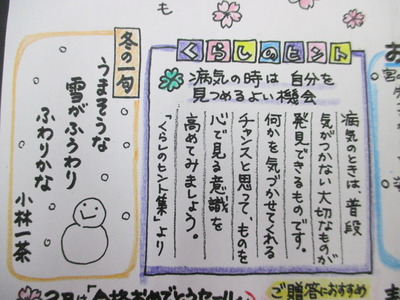 も
くらしのヒント
病気の時は 自分を
見つめるよい機会
病気のときは、普段
気がつかない大切なものが
発見できるものです。
何かを気づかせてくれる
チャンスと思って、ものを
心で見る意識を
高めてみましょう。
「くらしのヒント集」より
冬の一句
うまそうな
雪がふうわり
ふわりかな
小林一茶
2月は「合格おめでとうセール」
ご贈答におすすめ